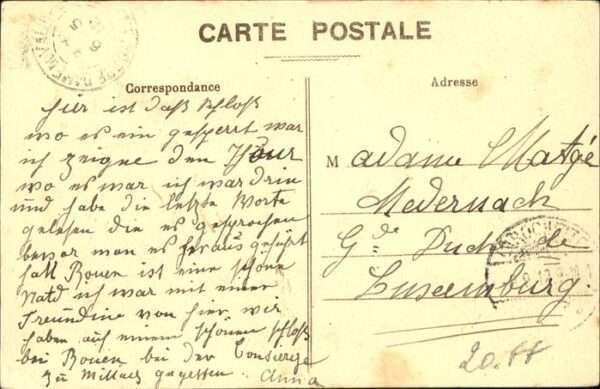 CARTE POSTALE
Correspondance
Adresse
hier ist daß Schloß
wo es ein gesperrt war
ich zeigne den Thour
wo es war ich war drin
und habe die letzte Worte
gelesen die es gesprochen
bevor man es heraus gefürt
hatt Rouen ist eine schöne
Statd ich war mit einer
Freundine von hier wir
haben auf einem schönen Schloß
bei Rouen bei der Consierge
zu Mittag gegessen. Anna
Madame Matgé
Medernach
Gde Duché de
Luxemburg.
20.ff